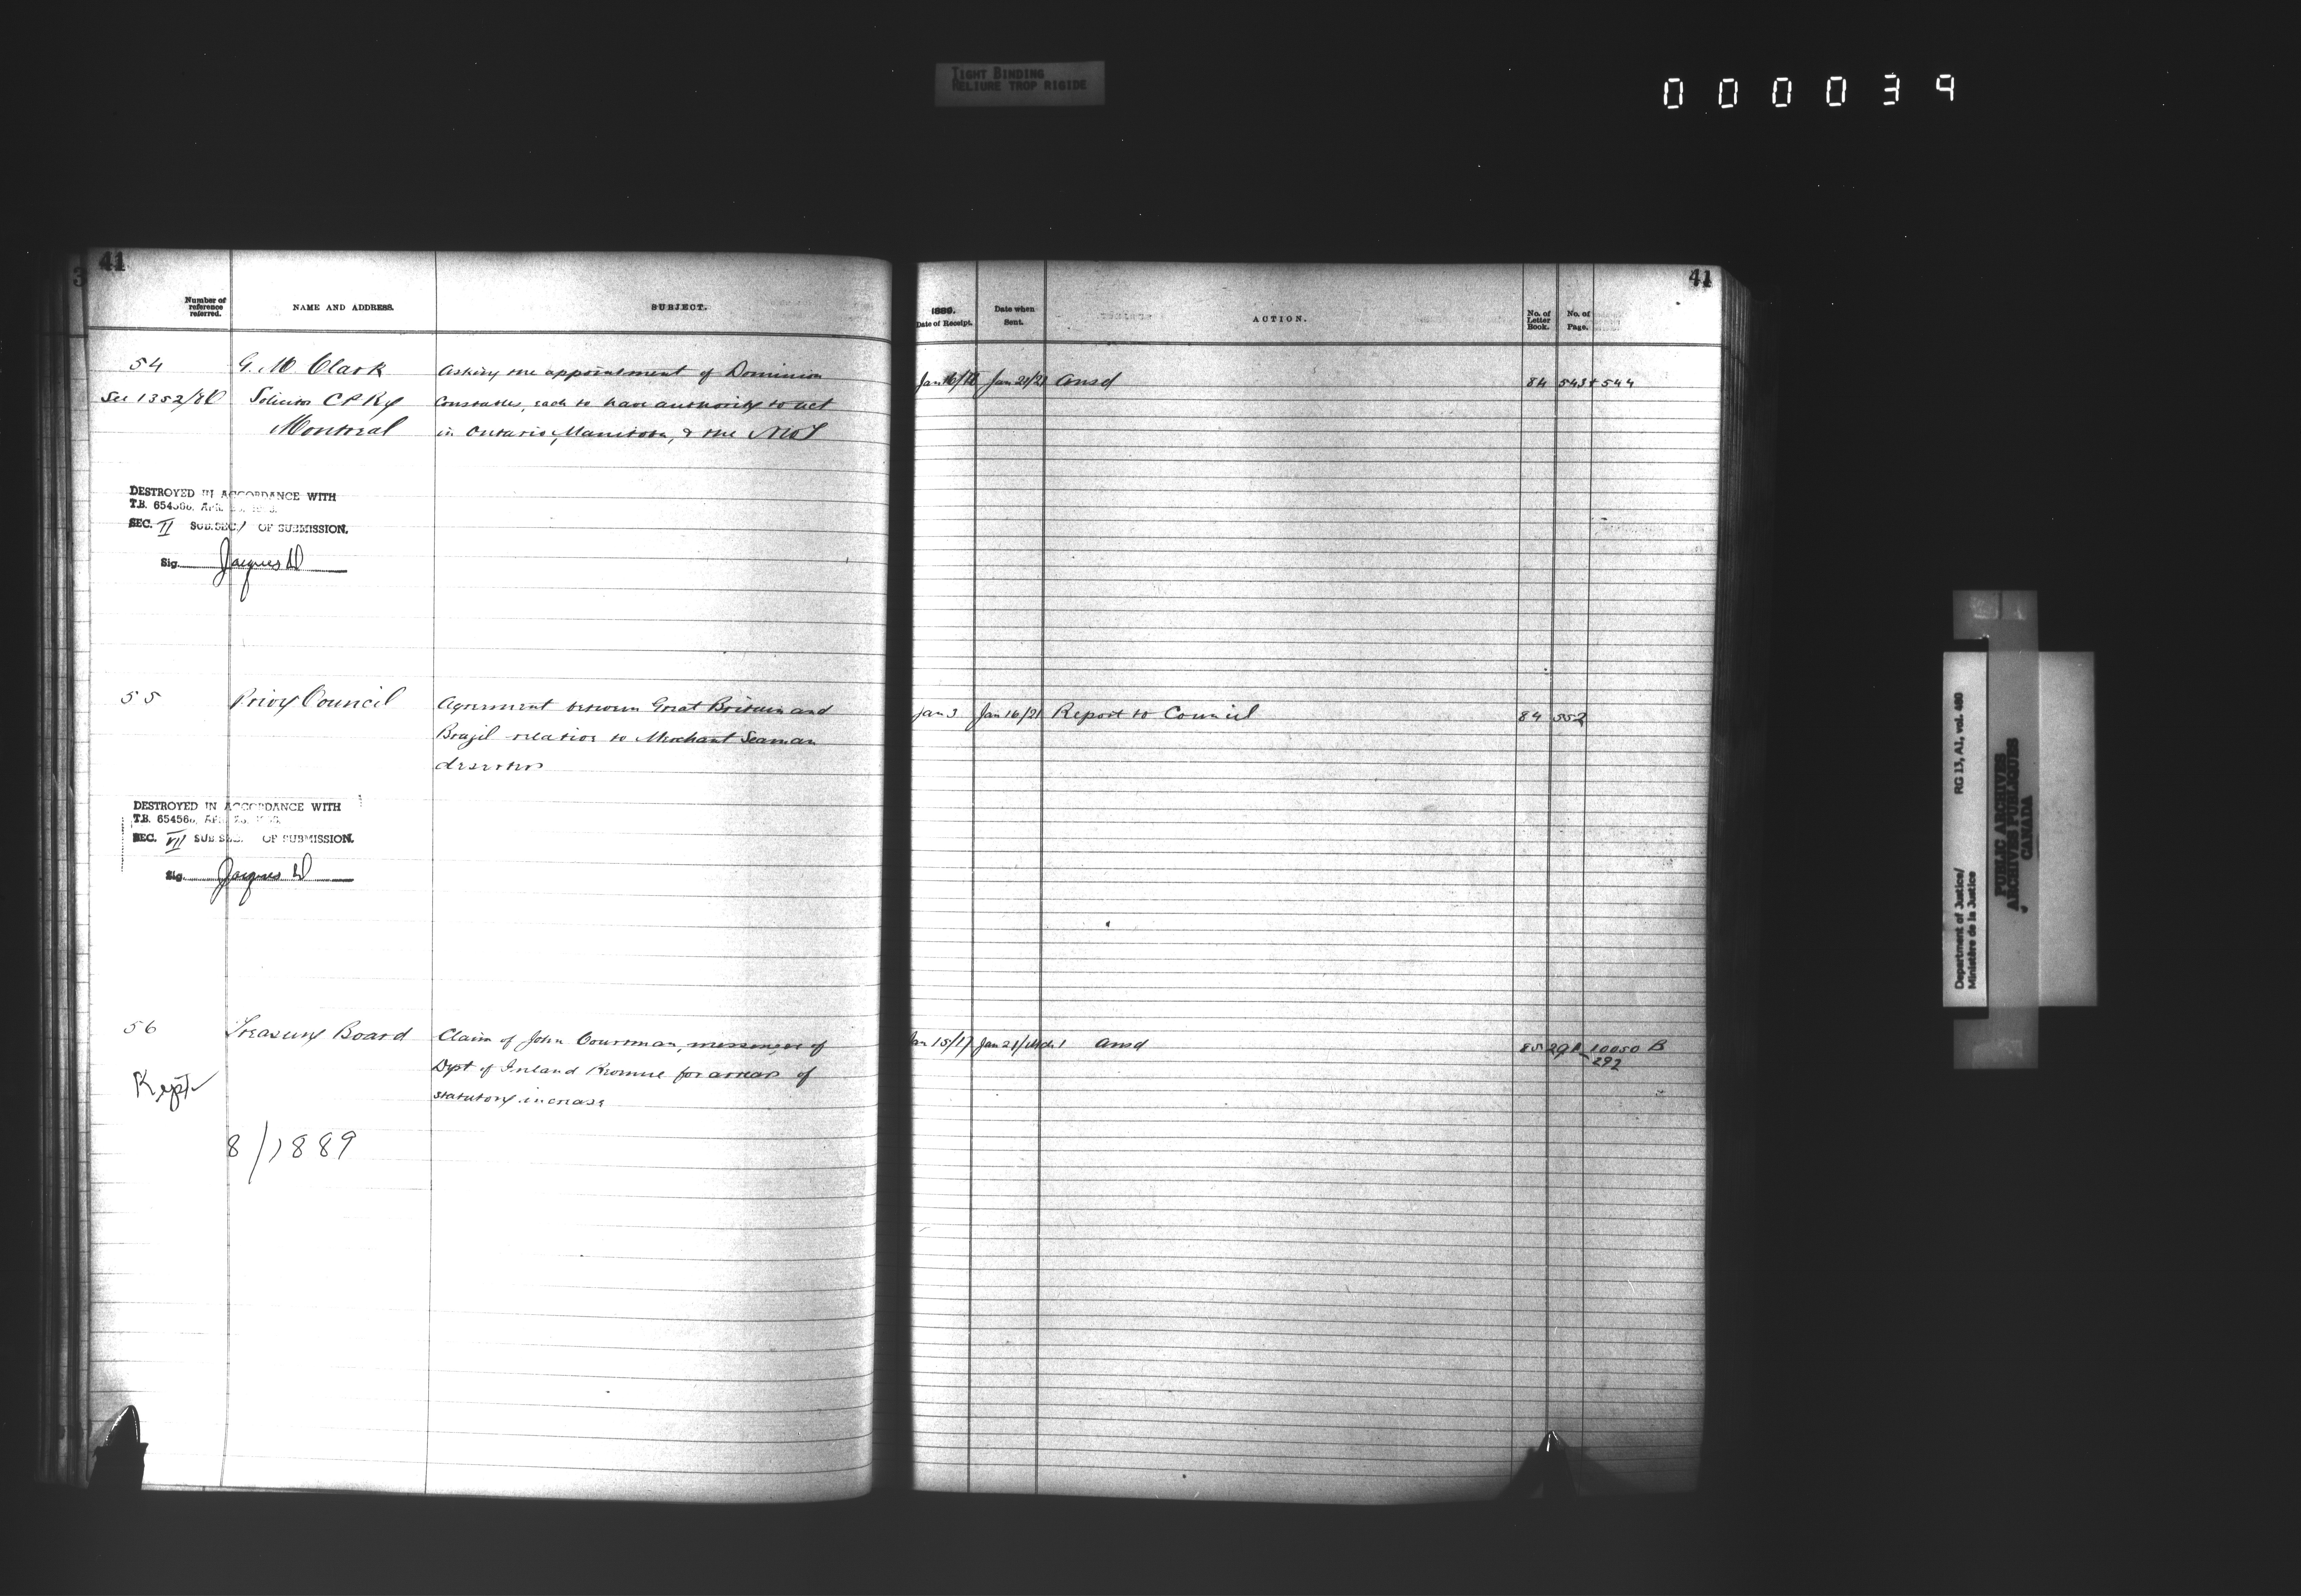 TIGHT BINDING
RELIURE TROP RIGIDE
000039
41
Number of reference referred.
NAME AND ADDRESS.
SUBJECT.
54
G. M. Clark
Asking the appointment of Dominion
See 1352/88
Solicitor C P Ry
Constables, each to have authority to act
Montreal
in Ontario, Manitoba, & the NWT
DESTROYED IN ACCORDANCE WITH
T.B. 654566, APR.
SEC. II SUB.SEC. 1 OF SUBMISSION.
Sig. Jacques
55
Privy Council
Agreement between Great Britain and
Brazil relative to Merchant Seaman
deserters
DESTROYED IN ACCORDANCE WITH
T.B. 654566, APR. 23,
SEC. VII SUB SEC. OF SUBMISSION.
Sig. Jacques
56
Treasury Board
Claim of John Courtman, messenger of
Dept of Inland Revenue for arrears of
statutory increase
Kept
8/1889
41
1889.
Date of Receipt.
Date when Sent.
ACTION.
No. of Letter Book.
No. of Page.
Jan 16/18 Jan 21/21 Ansd 84 543+544
Jan 3 Jan 16/21 Report to Council 84 552
Jan 15/17 Jan 21/ Mch 1 Ansd 85 291 10050 B
292
Department of Justice/ RG 13, A1, vol. 480
Ministère de la Justice
PUBLIC ARCHIVES
ARCHIVES PUBLIQUES
CANADA